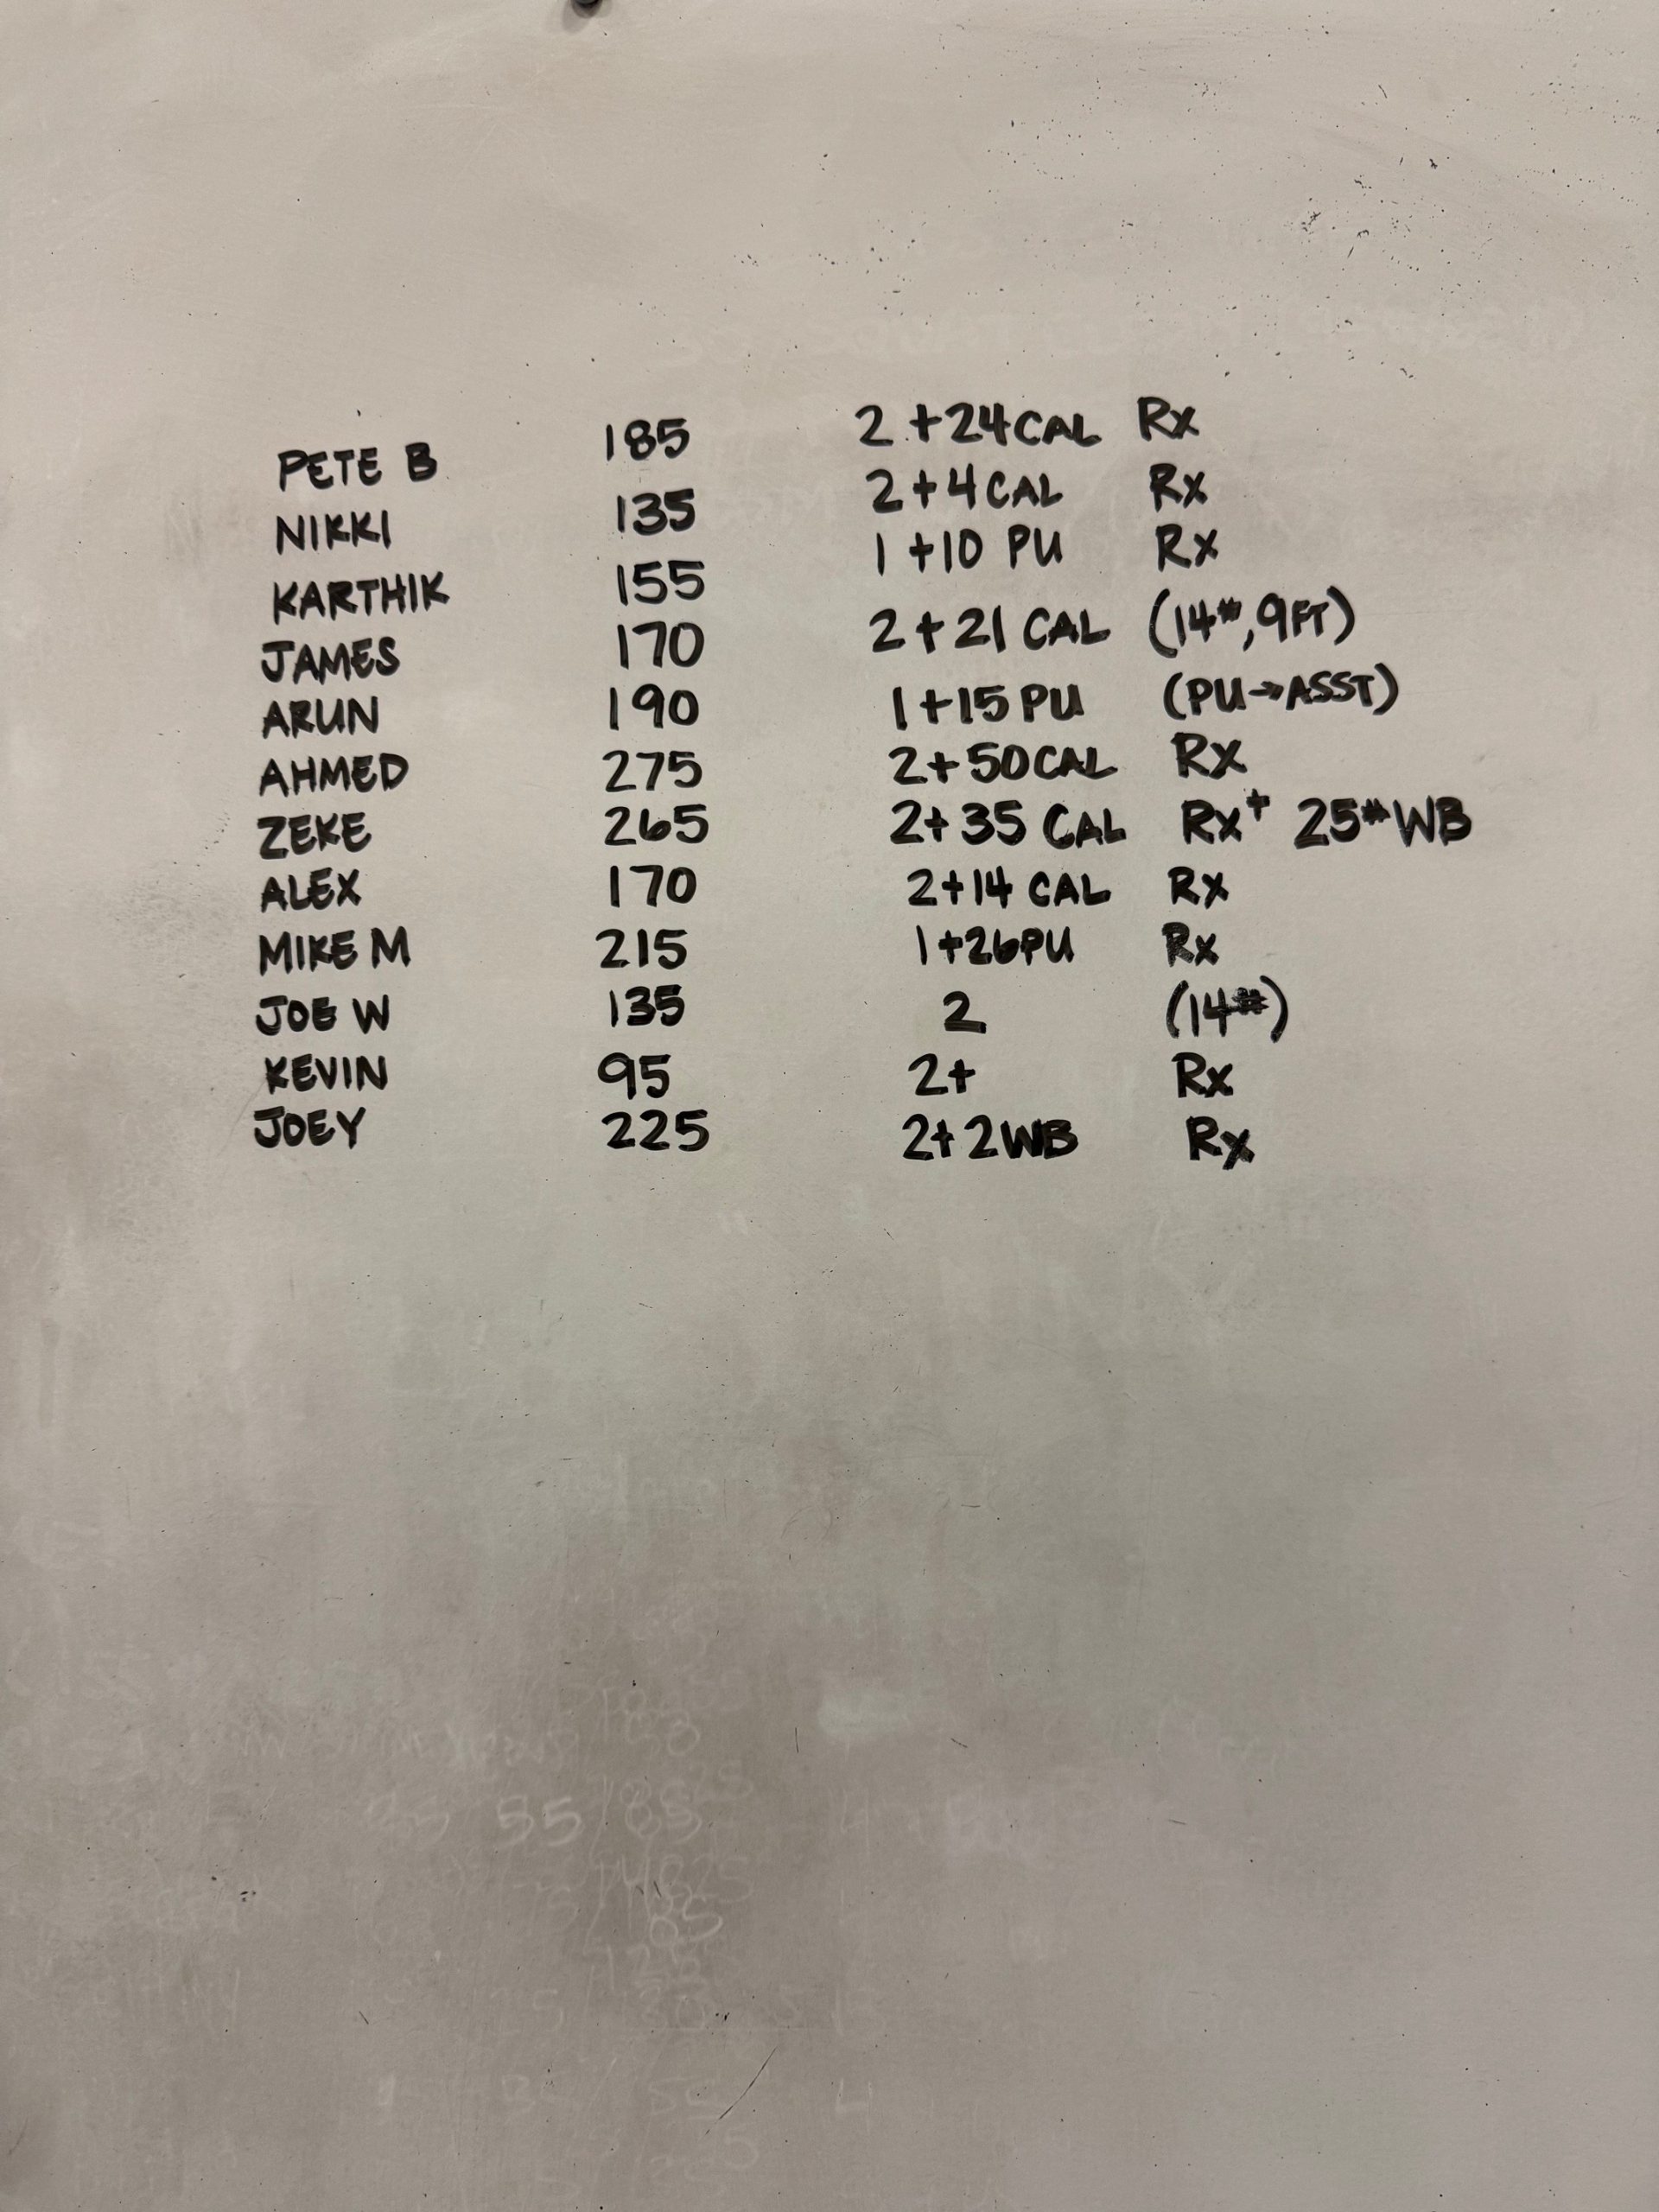 PETE B 185 2 +24 CAL Rx
NIKKI 135 2 + 4 CAL Rx
KARTHIK 155 1 +10 PU Rx
JAMES 170 2 + 21 CAL (14#, 9FT)
ARUN 190 1+15 PU (PU→ASST)
AHMED 275 2+ 50 CAL Rx
ZEKE 265 2+ 35 CAL Rx+ 25# WB
ALEX 170 2+14 CAL Rx
MIKE M 215 1+26PU Rx
JOE W 135 2 (14#)
KEVIN 95 2+ Rx
JOEY 225 2+ 2WB Rx